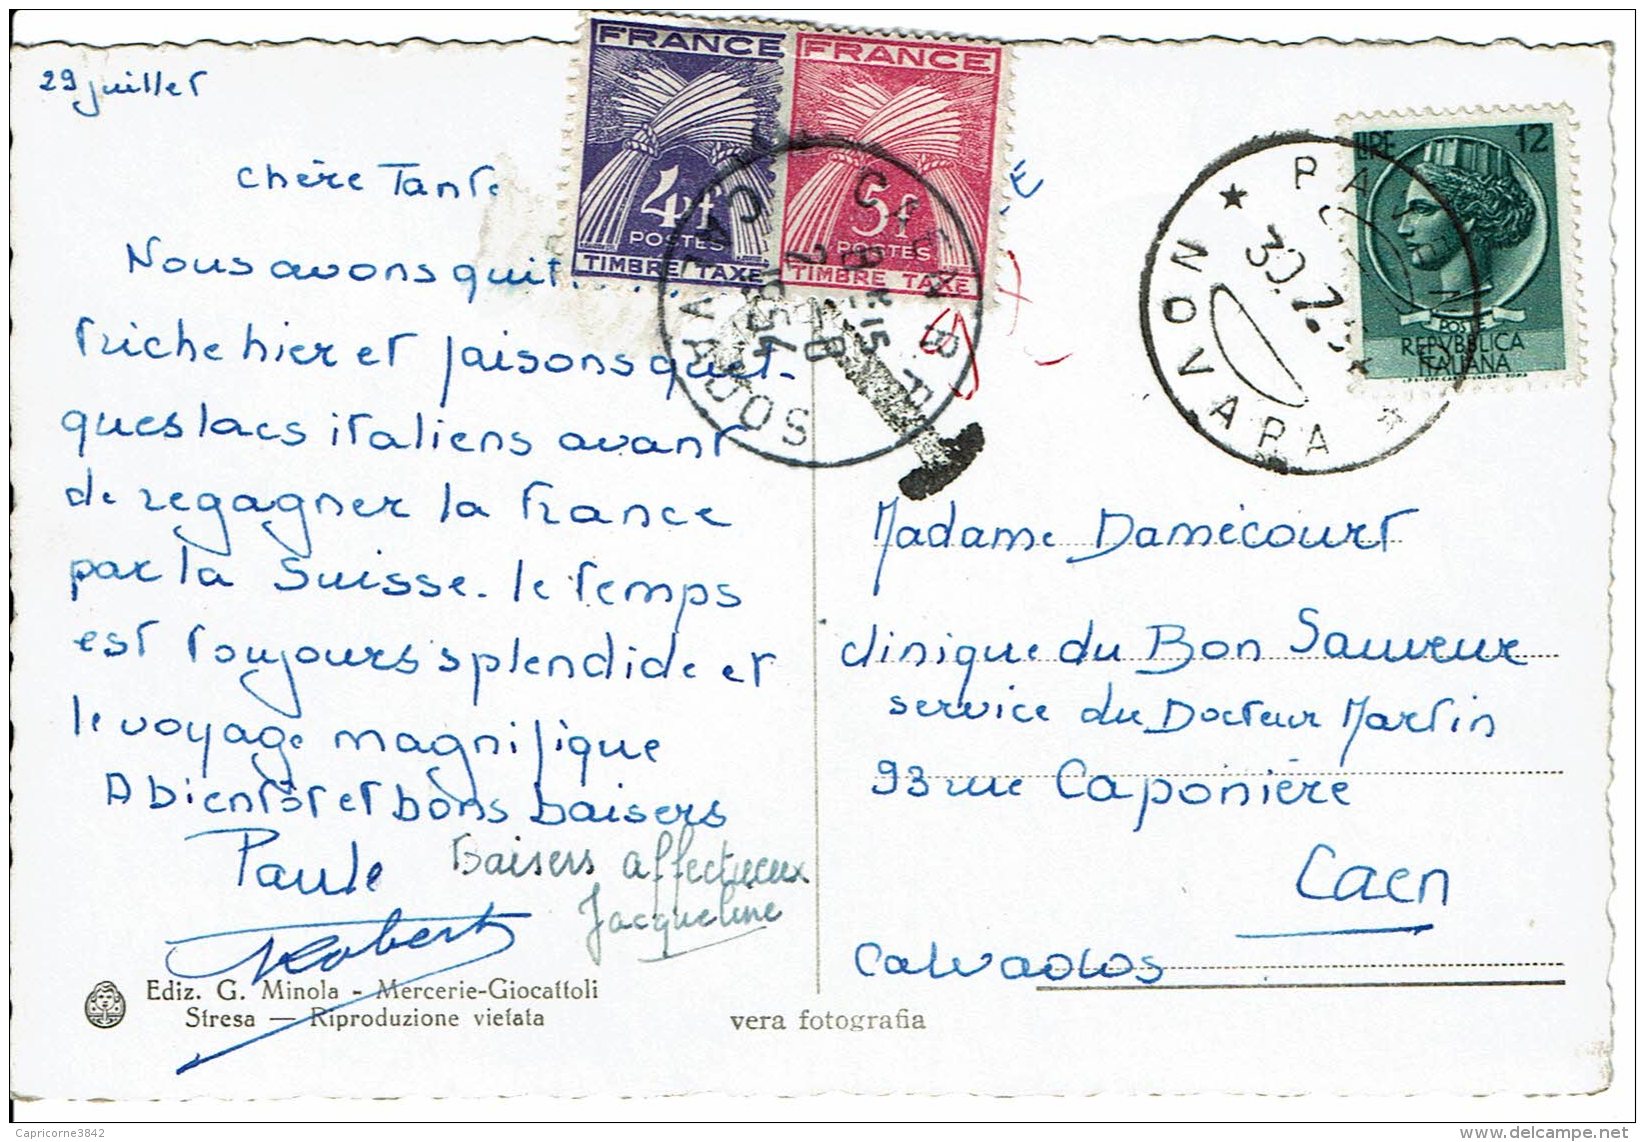 29 juillet
Chère Tante
Nous avons quit
triche hier et faisons quel-
ques lacs italiens avant
de regagner la France
par la Suisse. le temps
est toujours splendide et
le voyage magnifique
A bientôt et bons baisers
Paule
Baisers affectueux
Jacqueline
Robert
Ediz. G. Minola - Mercerie-Giocattoli
Stresa — Riproduzione vietata
vera fotografia
FRANCE
4f
POSTES
TIMBRE TAXE
FRANCE
5f
POSTES
TIMBRE TAXE
CAEN
CALVADOS
15
2 8
1954
LIRE 12
POSTE
REPVBBLICA
ITALIANA
NOVARA
30.7.
Madame Damécourt
Clinique du Bon Sauveur
service du Docteur Martin
93 rue Caponière
Caen
Calvados
Capricorne3842